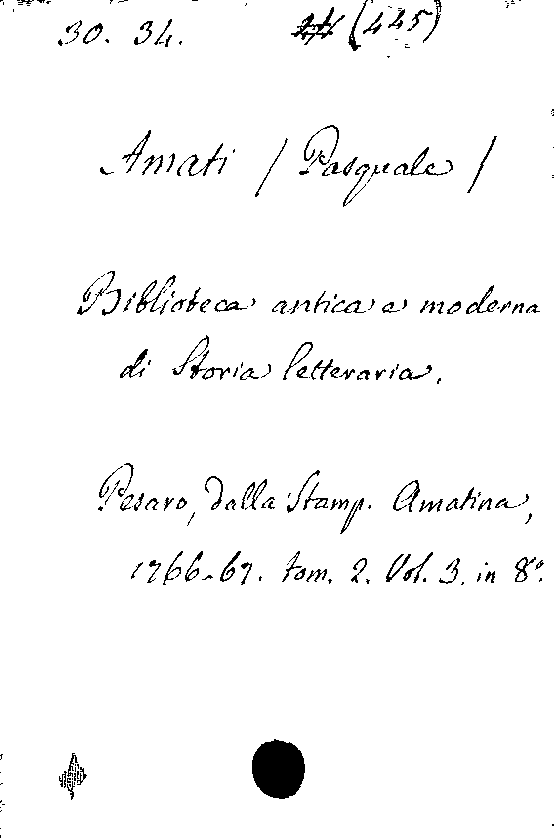 30. 34. (445)
Amati / Pasquale /
Biblioteca antica e moderna
di Storia letteraria.
Pesaro, dalla Stamp. Amatina,
1766-67. tom. 2. Vol. 3. in 8º.